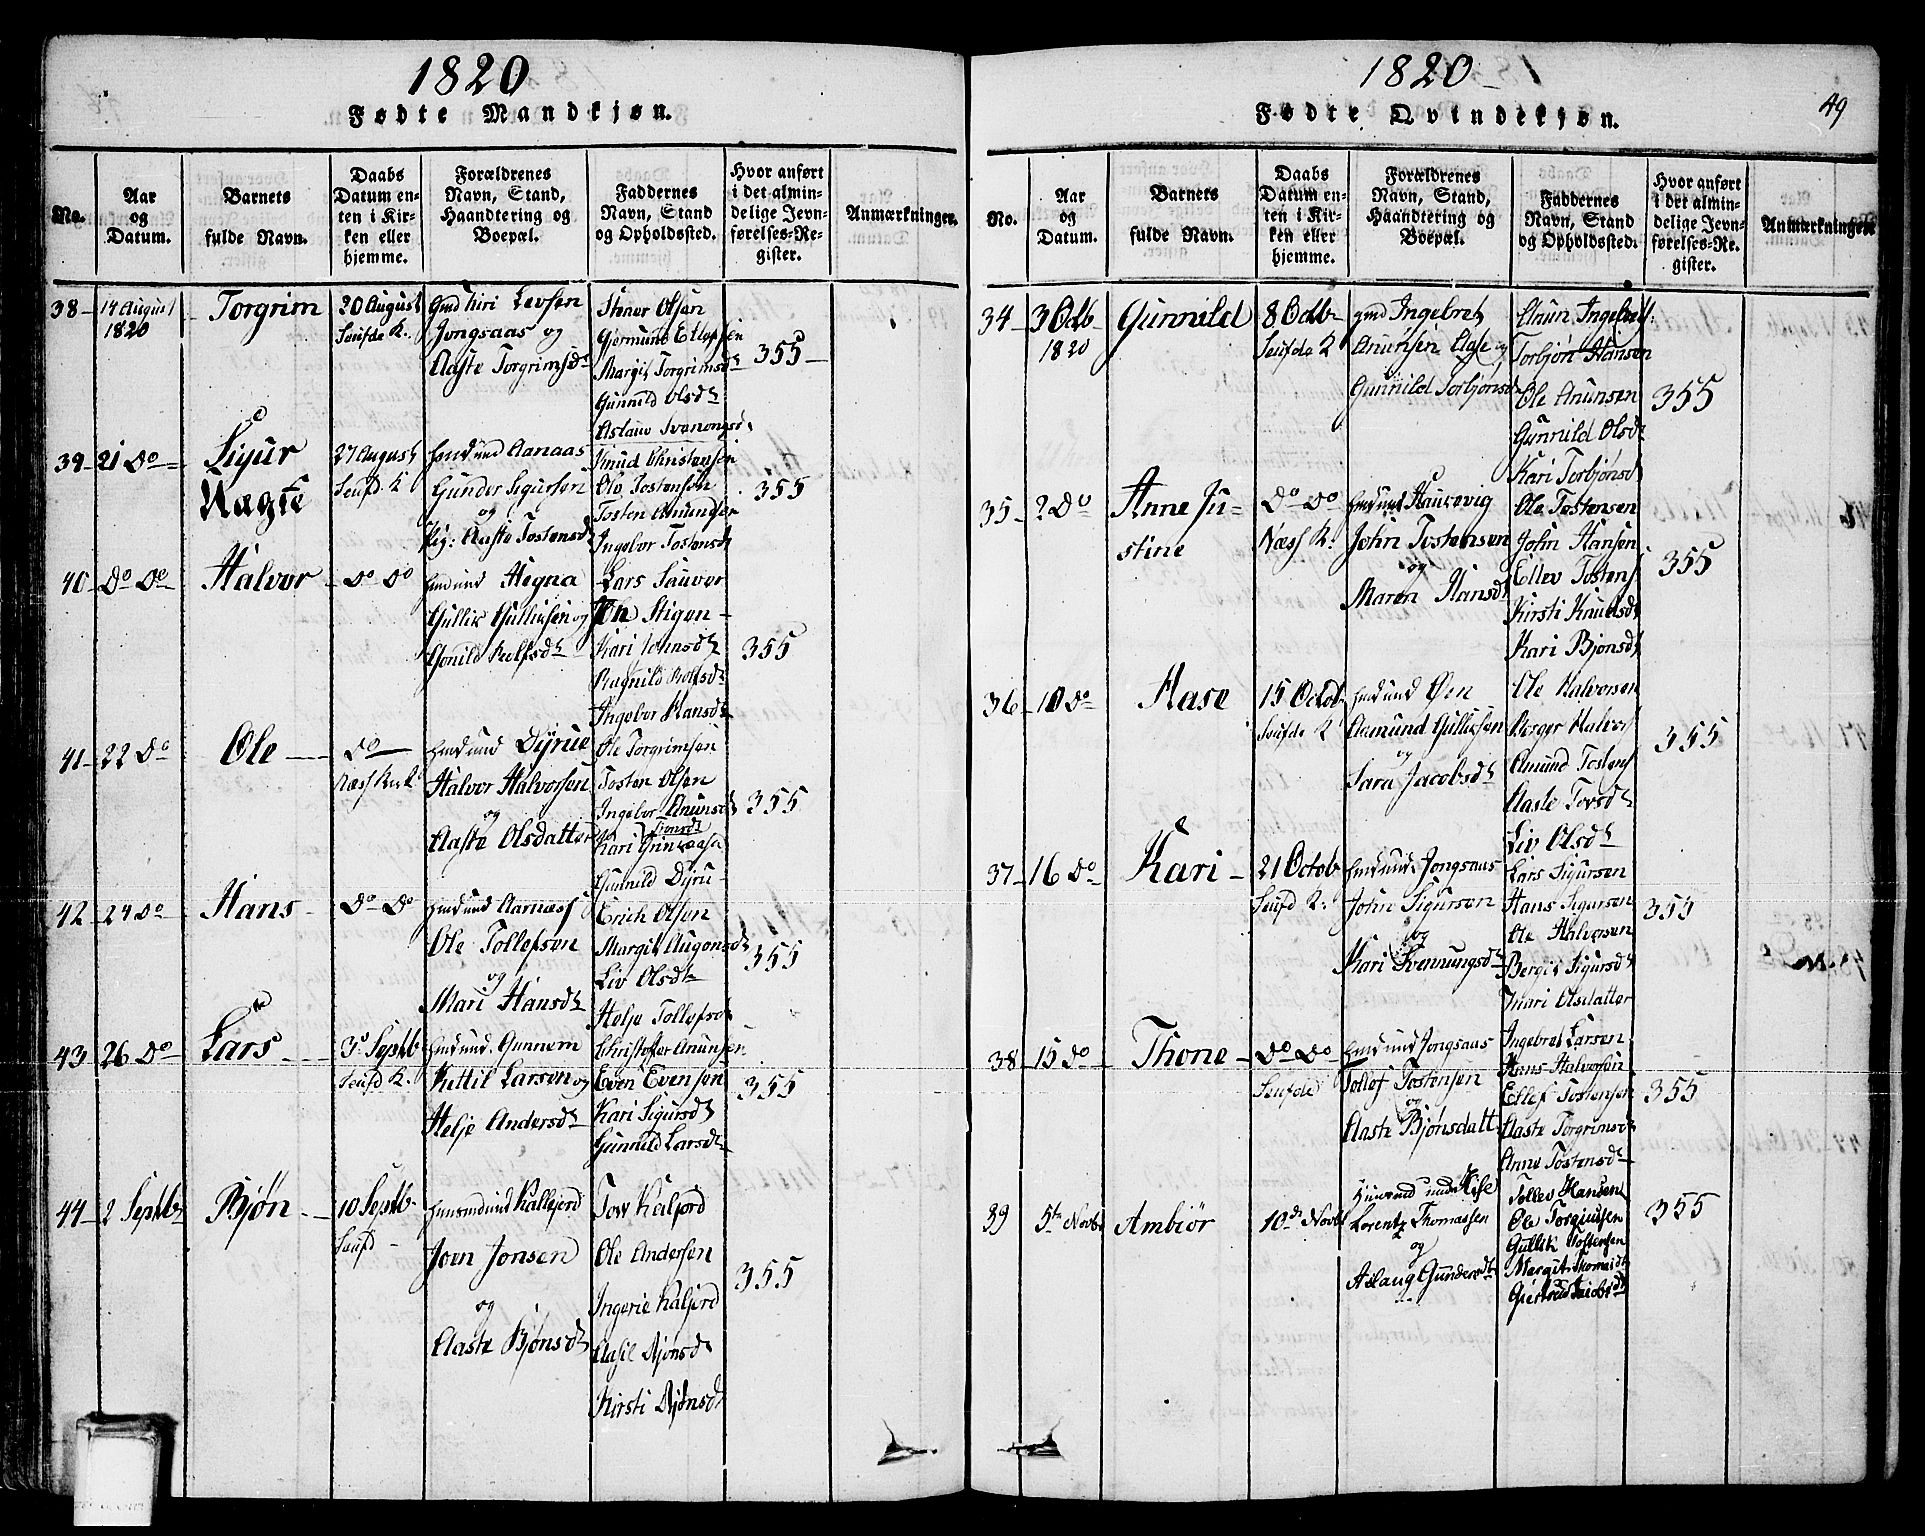 1820
Fødte Mandkjøn.
No.
Aar
og
Datum.
Barnets
fulde Navn.
Daabs
Datum en-
ten i Kir-
ken eller
hjemme.
Forældrenes
Navn, Stand,
Haandtering og
Boepæl.
Faddernes
Navn, Stand
og Opholdssted.
Hvor anført
i det almin-
delige Jevn-
førelses-Re-
gister.
Anmærkninger.
38
14 August
1820
Torgrim
20 August
Seufde K.
Levsen
Jongsaas og
Aaste Torgrimsdt
Stener Olsen
Giermund Ellefsen
Margit Torgrimsdt
Gunnild Olsdt
Aslaug
355
39
21 Do
Sigur
Nagte
27 August
Seufd K
Aanaas
Gunder Sigursen
og
Pig: Aaste Tostensdt
Knud Christensen
Ole Tostensen
Tosten Amundsen
Ingebor Tostensdt
355
40
Do Do
Halvor
Do Do
Hegna
Gullik Gulliksen og
Gonild Rolfsdt
Lars Sauvor
Jon Stigen
Kari Johnsdt
Ragnild Rolfsdt
Ingebor Hansdt
355
41
22 Do
Ole
Do
Næss Kirk
Dyrue
Halvor Halvorsen
og
Aaste Olsdatter
Ole Torgrimsen
Tosten Olsen
Ingebor Anunsdt
Kari
Gunnild Dyru
355
42
24 Do
Hans
Do Do
Aarnæss
Ole Tollefsen
og
Mari Hansdt
Erich Olsen
Margit Augonsdt
Liv Olsdt
Helje Tollefsdt
355
43
26 Do
Lars
3 Septb
Seufd K.
Gunnem
Kittil Larsen og
Helje Andersdt
Christoffer Anunsen
Even Evensen
Kari Sigursdt
Gunnild Larsdt
355
44
2 Septb
Bjøn
10 Septb
Seufd
Kallejord
Joen Jonsen
og
Aaste Bjønsdt
Tov Kaljord
Ole Andersen
Ingerie Kaljord
Aasil Bjønsdt
Kirsti Bjønsdt
355
1820
49
Fødte Qvindekjøn.
No.
Aar
og
Datum.
Barnets
fulde Navn.
Daabs
Datum en-
ten i Kir-
ken eller
hjemme.
Forældrenes
Navn, Stand,
Haandtering og
Boepæl.
Faddernes
Navn, Stand
og Opholdssted.
Hvor anført
i det almin-
delige Jevn-
førelses-Re-
gister.
Anmærkninger.
34
3 Octb
1820
Gunnild
8 Octb
Seufde K
gmd Ingebret
Anunsen Aase og
Gunnild Torbjønsdt
Anun Ingebretss:
Torbjøn Hansen
Ole Anunsen
Gunnild Olsdt
Kari Torbjønsd
355
35
2 Do
Anne Ju=
stine
Do Do
Næss K.
Haukevig
John Tostensen
og
Maren Hansdt
Ole Tostensen
John Hansen
Ellev Tostens
Kirsti Knudsdt
Kari Bjønsdt
355
36
10 Do
Aase
15 Octob
Seufde K
Øen
Aamund Gulliksen
og
Sara Jacobsdt
Ole Halvorsen
Halvors
Amund Tostens
Aaste Torsdt
Liv Olsdt
355
37
16 Do
Kari
21 Octob
Seufd K.
Jongsaas
John Sigursen
og
Kari Svennungsdt
Lars Sigursen
Hans Sigursen
Ole Halvorsen
Bergit Sigursdt
Mari Olsdatter
355
38
15 Do
Thone
Do Do
Seufde
Jongsaas
Tollef Tostensen
og
Aaste Bjønsdatt
Ingebret Larsen
Hans Halvorsen
Ellef Tostensen
Aaste Torgrimsdt
Anne Tostensdt
355
39
5te Novb
Ambiør
10d Novb
Lorentz Thomassen
og
Aslaug Gundersdt
Tollev Hansen
Ole Torgiussen
Gullik Tostensen
Margit Thomasdt
Giertrud Jacobsdt
355